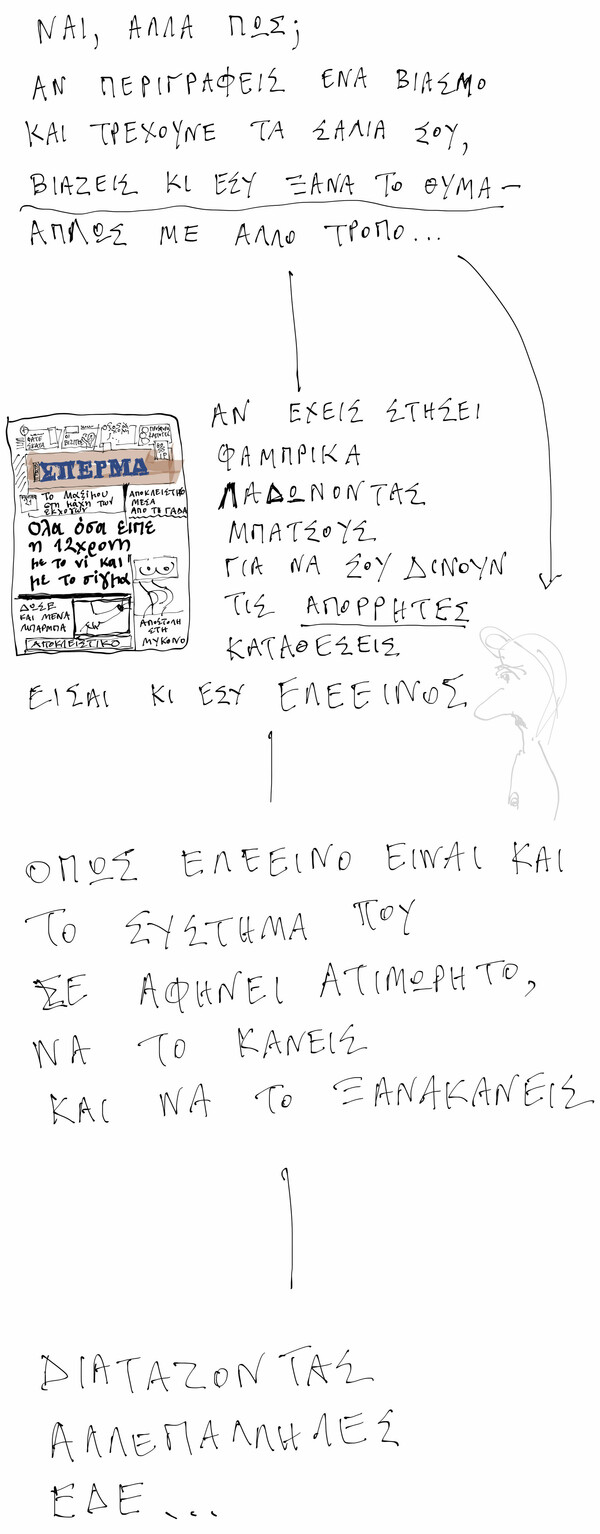 ΝΑΙ, ΑΛΛΑ ΠΩΣ;
ΑΝ ΠΕΡΙΓΡΑΦΕΙΣ ΕΝΑ ΒΙΑΣΜΟ
ΚΑΙ ΤΡΕΧΟΥΝΕ ΤΑ ΣΑΛΙΑ ΣΟΥ,
ΒΙΑΖΕΙΣ ΚΙ ΕΣΥ ΞΑΝΑ ΤΟ ΘΥΜΑ –
ΑΠΛΩΣ ΜΕ ΑΛΛΟ ΤΡΟΠΟ...
ΑΝ ΕΧΕΙΣ ΣΤΗΣΕΙ
ΦΑΜΠΡΙΚΑ
ΛΑΔΩΝΟΝΤΑΣ
ΜΠΑΤΣΟΥΣ
ΓΙΑ ΝΑ ΣΟΥ ΔΙΝΟΥΝ
ΤΙΣ ΑΠΟΡΡΗΤΕΣ
ΚΑΤΑΘΕΣΕΙΣ
ΕΙΣΑΙ ΚΙ ΕΣΥ ΕΛΕΕΙΝΟΣ
ΣΠΕΡΜΑ
Το Μαξίμου
στη μάχη των
εκλογών
ΑΠΟΚΛΕΙΣΤΙΚΟ
ΜΕΣΑ
ΑΠΟ ΤΟ ΓΑΔΑ
Ολα όσα είπε
η 12χρονη
με το νι και
με το σίγμα
ΔΩΣΕ
ΚΑΙ ΜΕΝΑ
ΜΠΑΡΜΠΑ
ΑΠΟΚΛΕΙΣΤΙΚΟ
ΑΠΟΣΤΟΛΗ
ΣΤΗ
ΜΥΚΟΝΟ
ΟΠΩΣ ΕΛΕΕΙΝΟ ΕΙΝΑΙ ΚΑΙ
ΤΟ ΣΥΣΤΗΜΑ ΠΟΥ
ΣΕ ΑΦΗΝΕΙ ΑΤΙΜΩΡΗΤΟ,
ΝΑ ΤΟ ΚΑΝΕΙΣ
ΚΑΙ ΝΑ ΤΟ ΞΑΝΑΚΑΝΕΙΣ
ΔΙΑΤΑΖΟΝΤΑΣ
ΑΛΛΕΠΑΛΛΗΛΕΣ
ΕΔΕ...